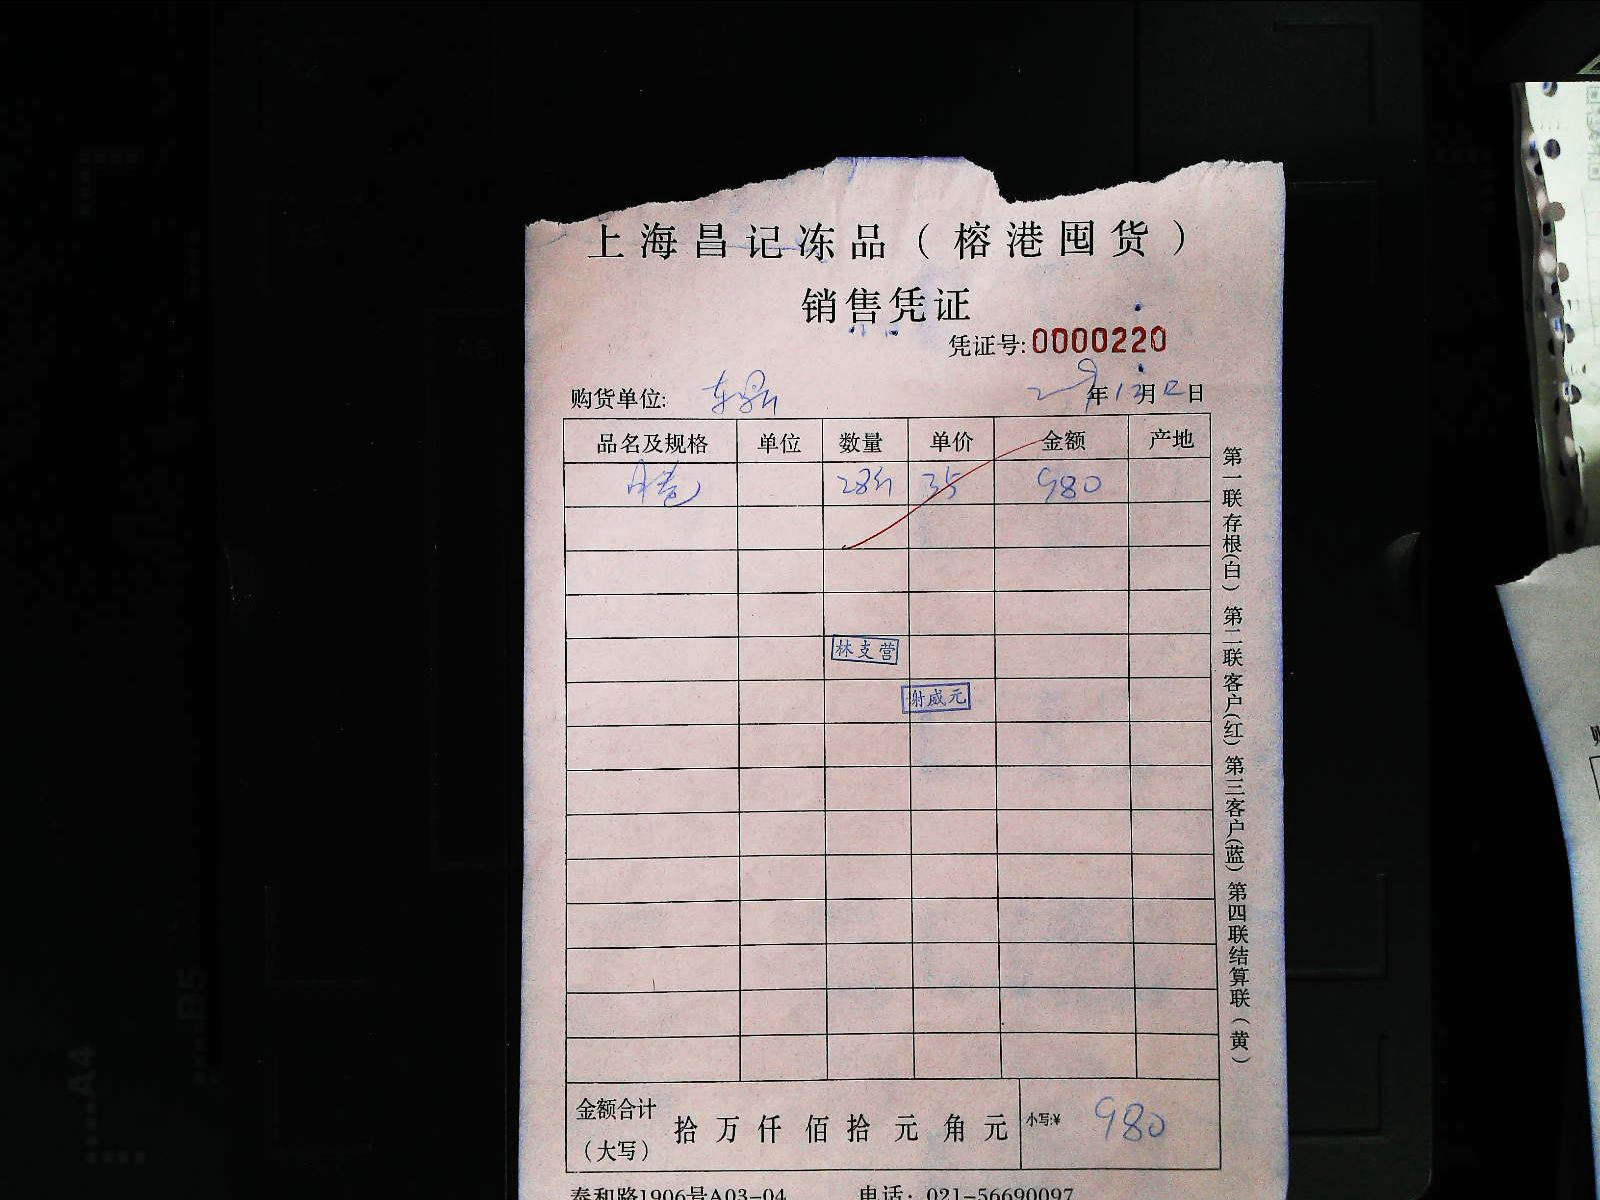 上海昌记冻品（榕港囤货）
销售凭证
凭证号:0000220
购货单位:
年12月12日
品名及规格 单位 数量 单价 金额 产地
28 35 980
林支营
谢威元
金额合计（大写） 拾 万 仟 佰 拾 元 角 元 小写:¥ 980
泰和路1906号A03-04 电话: 021-56690097
第一联存根(白) 第二联客户(红) 第三客户(蓝) 第四联结算联(黄)
A4
B5